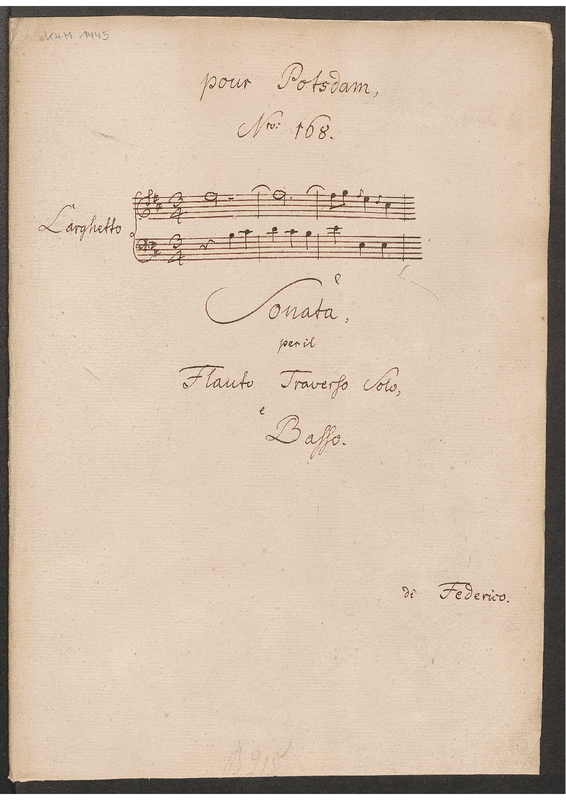 KHM 1445
pour Potsdam,
Nro: 168.
Larghetto
Sonata,
per il
Flauto Traverso Solo,
e
Basso.
di Federico.